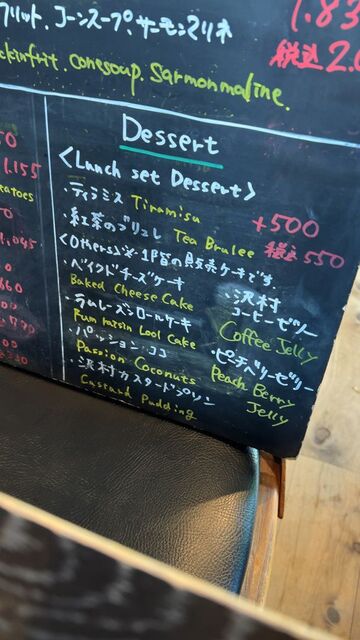 フリット、コーンスープ、サーモンマリネ
1.83
税込2.0
ckinfrit. conesoup. Sarmonmaline.
Dessert
<Lunch set Dessert>
・ティラミス Tiramisu
・紅茶のブリュレ Tea Brulee
+500
税込550
<Others>※1F店の販売ケーキです。
・ベイクドチーズケーキ
Baked Cheese Cake
・ラムレーズンロールケーキ
Rum raisin Lool Cake
・パッション・ココ
Passion Coconuts
・沢村カスタードプリン
Custard Pudding
・沢村
コーヒーゼリー
Coffee Jelly
・ピーチベリーゼリー
Peach Berry
Jelly
1.155
atoes
1.045